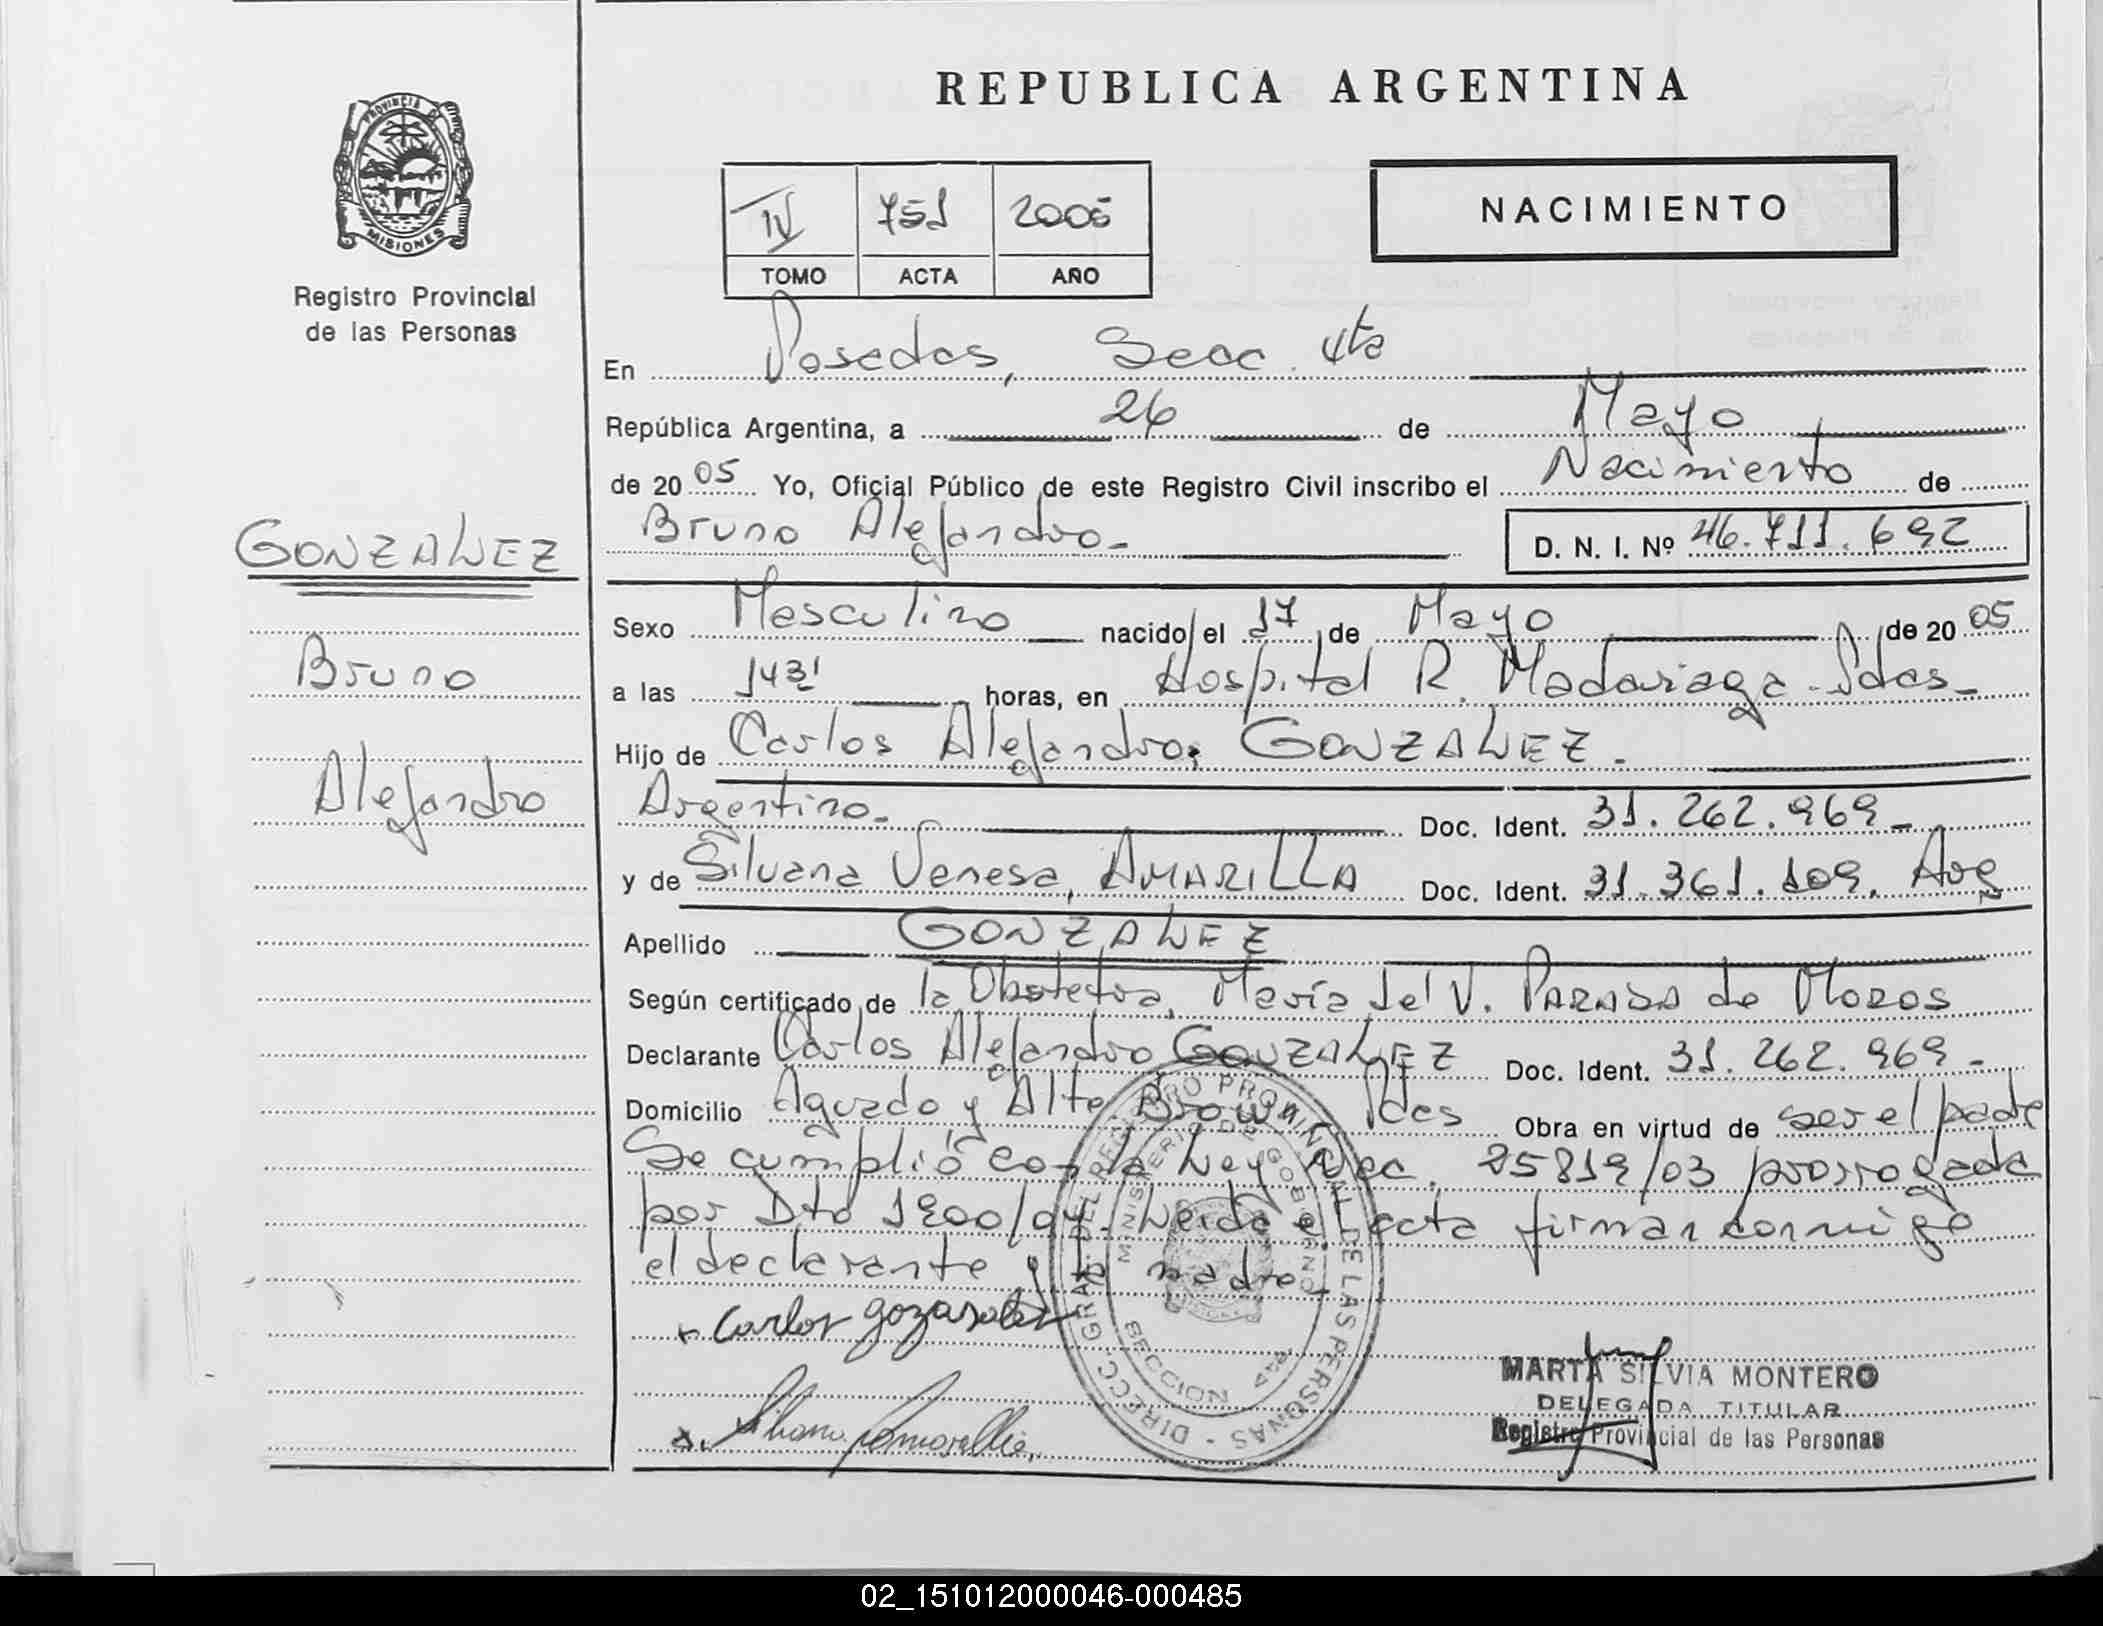 REPUBLICA ARGENTINA
PROVINCIA DE
MISIONES
Registro Provincial
de las Personas
IV 751 2005
TOMO ACTA AÑO
NACIMIENTO
En Posadas, Secc. 4ta
República Argentina, a 26 de Mayo
de 20 05 Yo, Oficial Público de este Registro Civil inscribo el Nacimiento de
Bruno Alejandro.- D. N. I. Nº 46.711.692
GONZALEZ
Bruno
Alejandro
Sexo Masculino nacido el 17 de Mayo de 20 05
a las 1431 horas, en Hospital R. Madariaga - Pdas -
Hijo de Carlos Alejandro, GONZALEZ.
Argentino.- Doc. Ident. 31.262.969 -
y de Silvana Vanesa, AMARILLA Doc. Ident. 31.361.109. Arg
Apellido GONZALEZ
Según certificado de la Obstetra, María del V. PARADA de MOROS
Declarante Carlos Alejandro GONZALEZ Doc. Ident. 31.262.969 -
Domicilio Aguado y Alte. Brown Pdas Obra en virtud de ser el padre
Se cumplió con la Ley Nac. 25819/03 prorrogada
por Dto 1900/04. Leída el acta firman conmigo
el declarante y la madre
Carlos gozasalez
Silvana Amarilla
DIRECC. GRAL. DEL REGISTRO PROVINCIAL DE LAS PERSONAS
MINISTERIO DE GOBIERNO
SECCION 4ta.
MARTA SILVIA MONTERO
DELEGADA TITULAR
Registro Provincial de las Personas
02_151012000046-000485